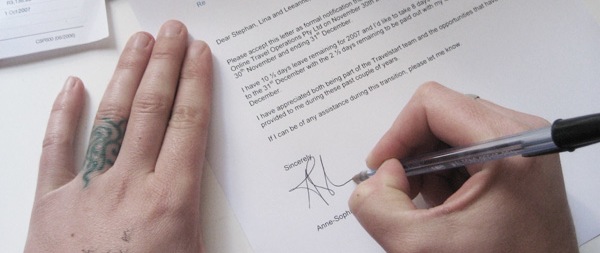 1 Oct/2007
Re
Dear Stephan, Lina and Leeanne
Please accept this letter as formal notification
Online Travel Operations Pty Ltd on November 30th
30th November and ending 31st December.
I have 10 ½ days leave remaining for 2007 and I'd like to take 8 days
to the 31st December with the 2 ½ days remaining to be paid out with my
December.
I have appreciated both being part of the Travelstart team and the opportunities that have
provided to me during these past couple of years.
If I can be of any assistance during this transition, please let me know
Sincerely
Anne-Soph